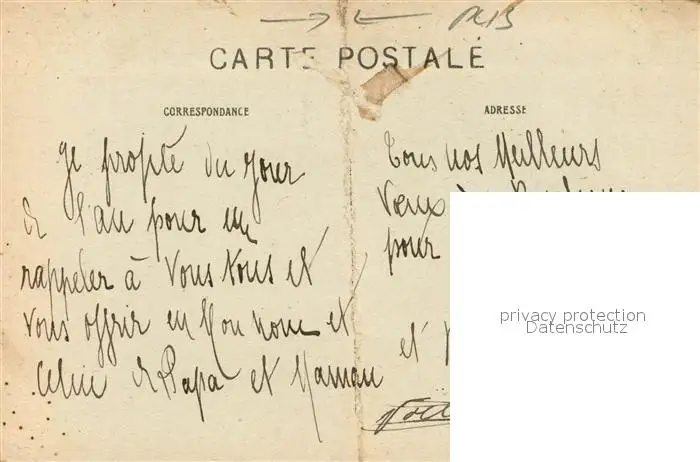 CARTE POSTALE
CORRESPONDANCE
ADRESSE
Je profite du Jour
de l'an pour me
rappeler à Vous tous et
Vous offrir en Mon nom et
celui de Papa et Maman
Tous nos Meilleurs
Vœux
pour
et
privacy protection
Datenschutz